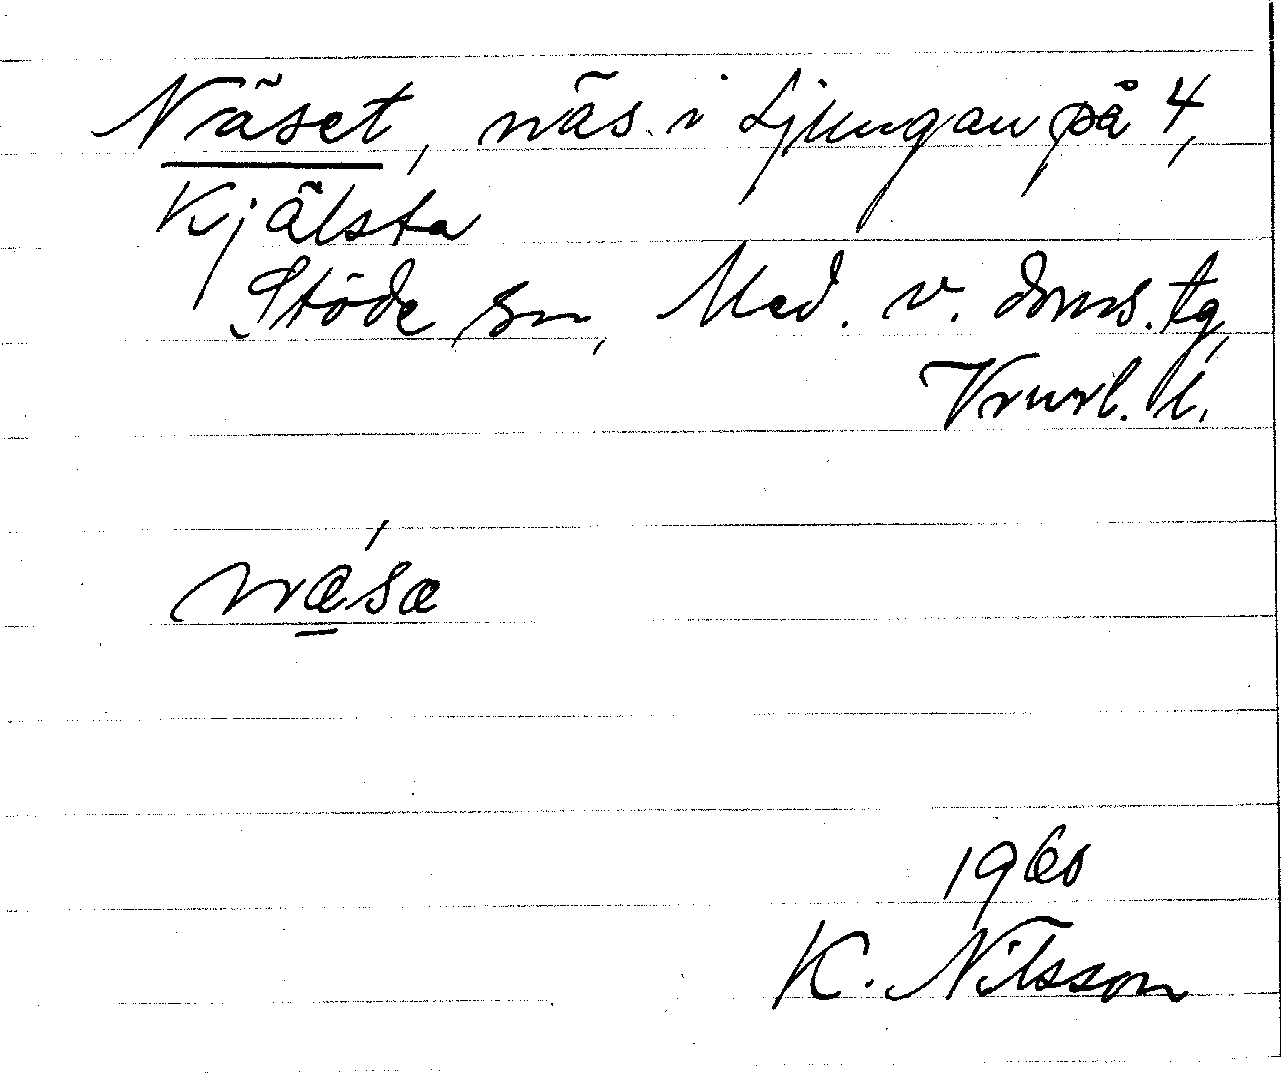 Näset, näs i Ljungan på 4,
Kjälsta
Stöde sn, Med. v. doms. tg,
Vnorl. l.
næ̲´sæ
1960
K. Nilsson